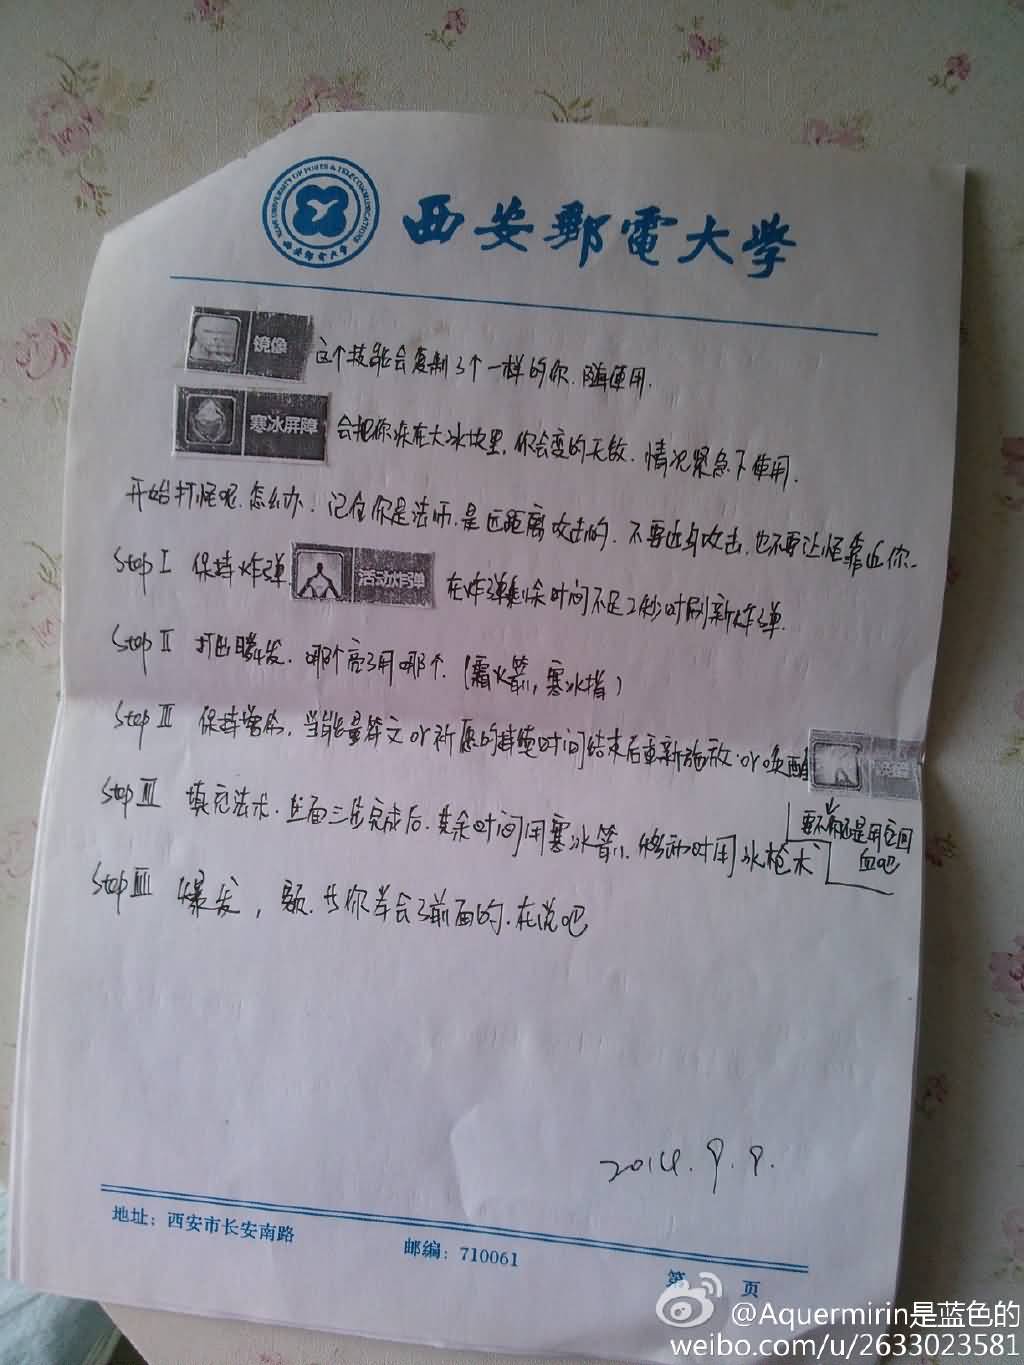 XI'AN UNIVERSITY OF POSTS & TELECOMMUNICATIONS
西安邮电大学
西安郵電大学
镜像 这个技能会复制3个一样的你.随便用.
寒冰屏障 会把你冻在大冰块里,你会变的无敌.情况紧急下使用.
开始打怪呢.怎么办.记住你是法师.是远距离攻击的.不要近身攻击,也不要让怪靠近你..
Step I 保持炸弹. 活动炸弹 在炸弹剩余时间不足2秒时刷新炸弹.
Step II 打出瞬发.哪个亮了用哪个.(霜火箭,寒冰指)
Step III 保持增伤,当能量符文or祈愿的持续时间结束后重新施放.or唤醒 唤醒
要不你还是用它回血吧
Step IIII 填充法术.上面三步完成后.其余时间用寒冰箭,移动时用冰枪术
Step IIIII 爆发,额.当你学会了前面的.在说吧
2014.9.9.
地址:西安市长安南路
邮编:710061
第 页
@Aquermirin是蓝色的
weibo.com/u/2633023581